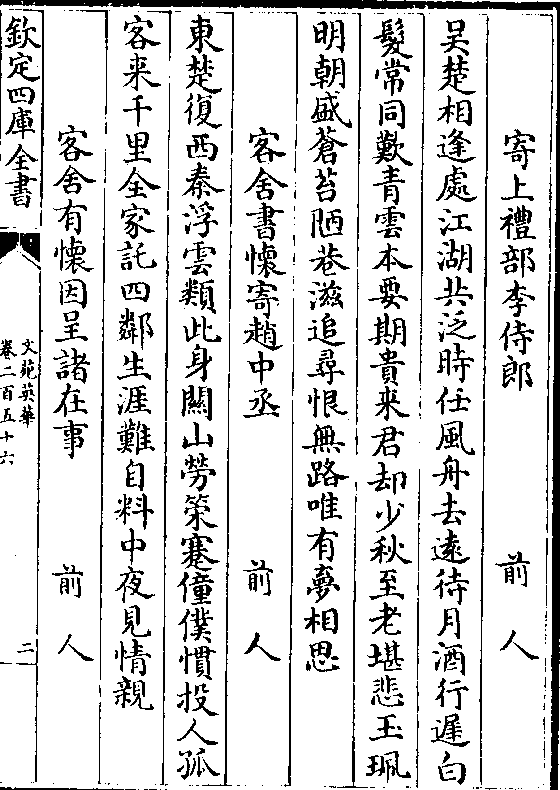 寄上禮部李侍郎　前人
吴楚相逢處江湖共泛時任風舟去遠待月酒行遲白
髮常同歎青雲本要期貴來君却少秋至老堪悲玉珮
明朝盛蒼苔陋巷滋追尋恨無路唯有夢相思
客舍書懷寄趙中丞　前人
東楚復西秦浮雲類此身關山勞策蹇僮僕慣投人孤
客來千里全家託四鄰生涯難自料中夜見情親
客舍有懷因呈諸在事　前人
欽定四庫全書
文苑英華
卷二百五十六
二